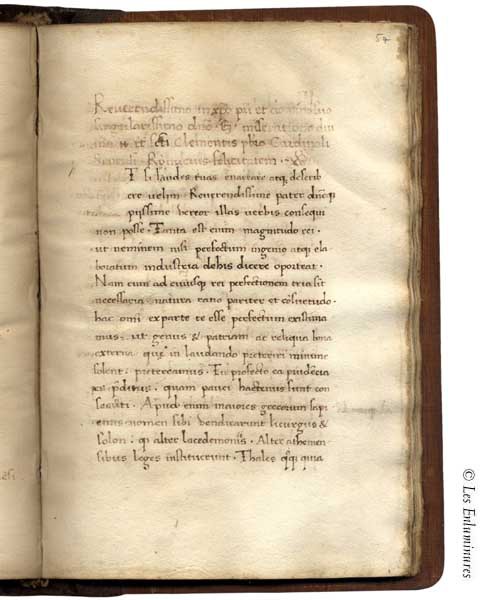 54
Reverendissimo in xpo pri et
singularissimo dno miseratione diui
na tt scti Clementis pbro Cardinali
Romanus felicitatem
T si laudes tuas enarrare atq describ
ere uelim Reuerendissime pater dneq
piissime uereor illas uerbis consequi
non posse. Tanta est enim magnitudo rei.
ut neminem nisi perfectum ingenio atq ela
boratum industria de his dicere oporteat.
Nam cum ad cuiusq rei perfectionem tria sit
necessaria natura ratio pariter et cosuetudo.
hac omi ex parte te esse perfectum existima
mus. ut genus & patriam ac reliqua bona
externa que in laudando preteriri minime
solent. pretereamus. Tu profecto ea prudecia
es preditus. quam pauci hactenus sunt con
secuti. Apud enim maiores grecorum sapi
entis nomen sibi uendicarunt licurgus &
solon. qi alter lacedemoniis. Alter athenien
sibus leges instituerunt. Thales qia
© Les Enluminures